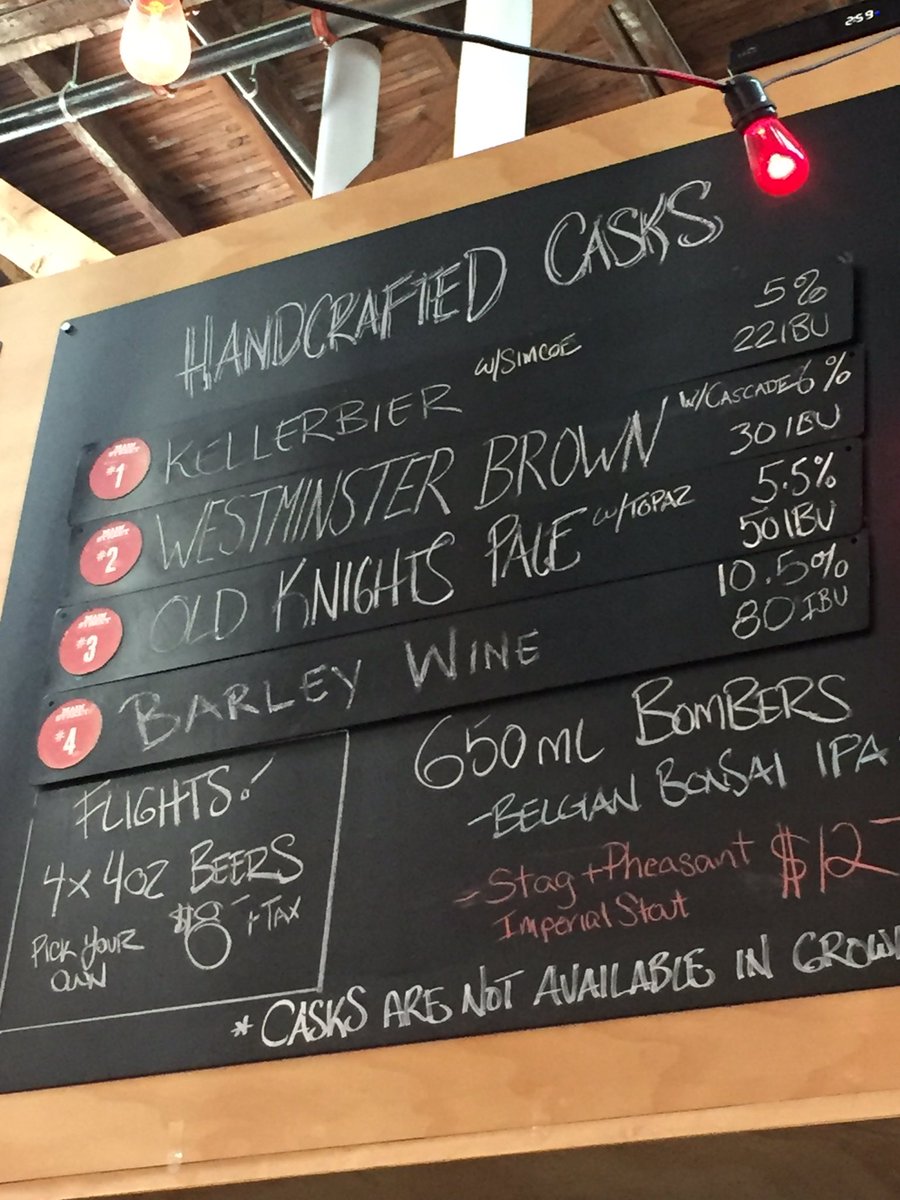 259
HANDCRAFTED CASKS
#1 KELLERBIER W/SIMCOE 5% 22IBU
#2 WESTMINSTER BROWN W/CASCADE 6% 30IBU
#3 OLD KNIGHTS PALE W/TOPAZ 5.5% 50IBU
#4 BARLEY WINE 10.5% 80IBU
FLIGHTS!
4x 4oz BEERS
PICK YOUR OWN $8 + TAX
650ML BOMBERS
- BELGIAN BONSAI IPA
- Stag + Pheasant Imperial Stout $12
* CASKS ARE NOT AVAILABLE IN GROW